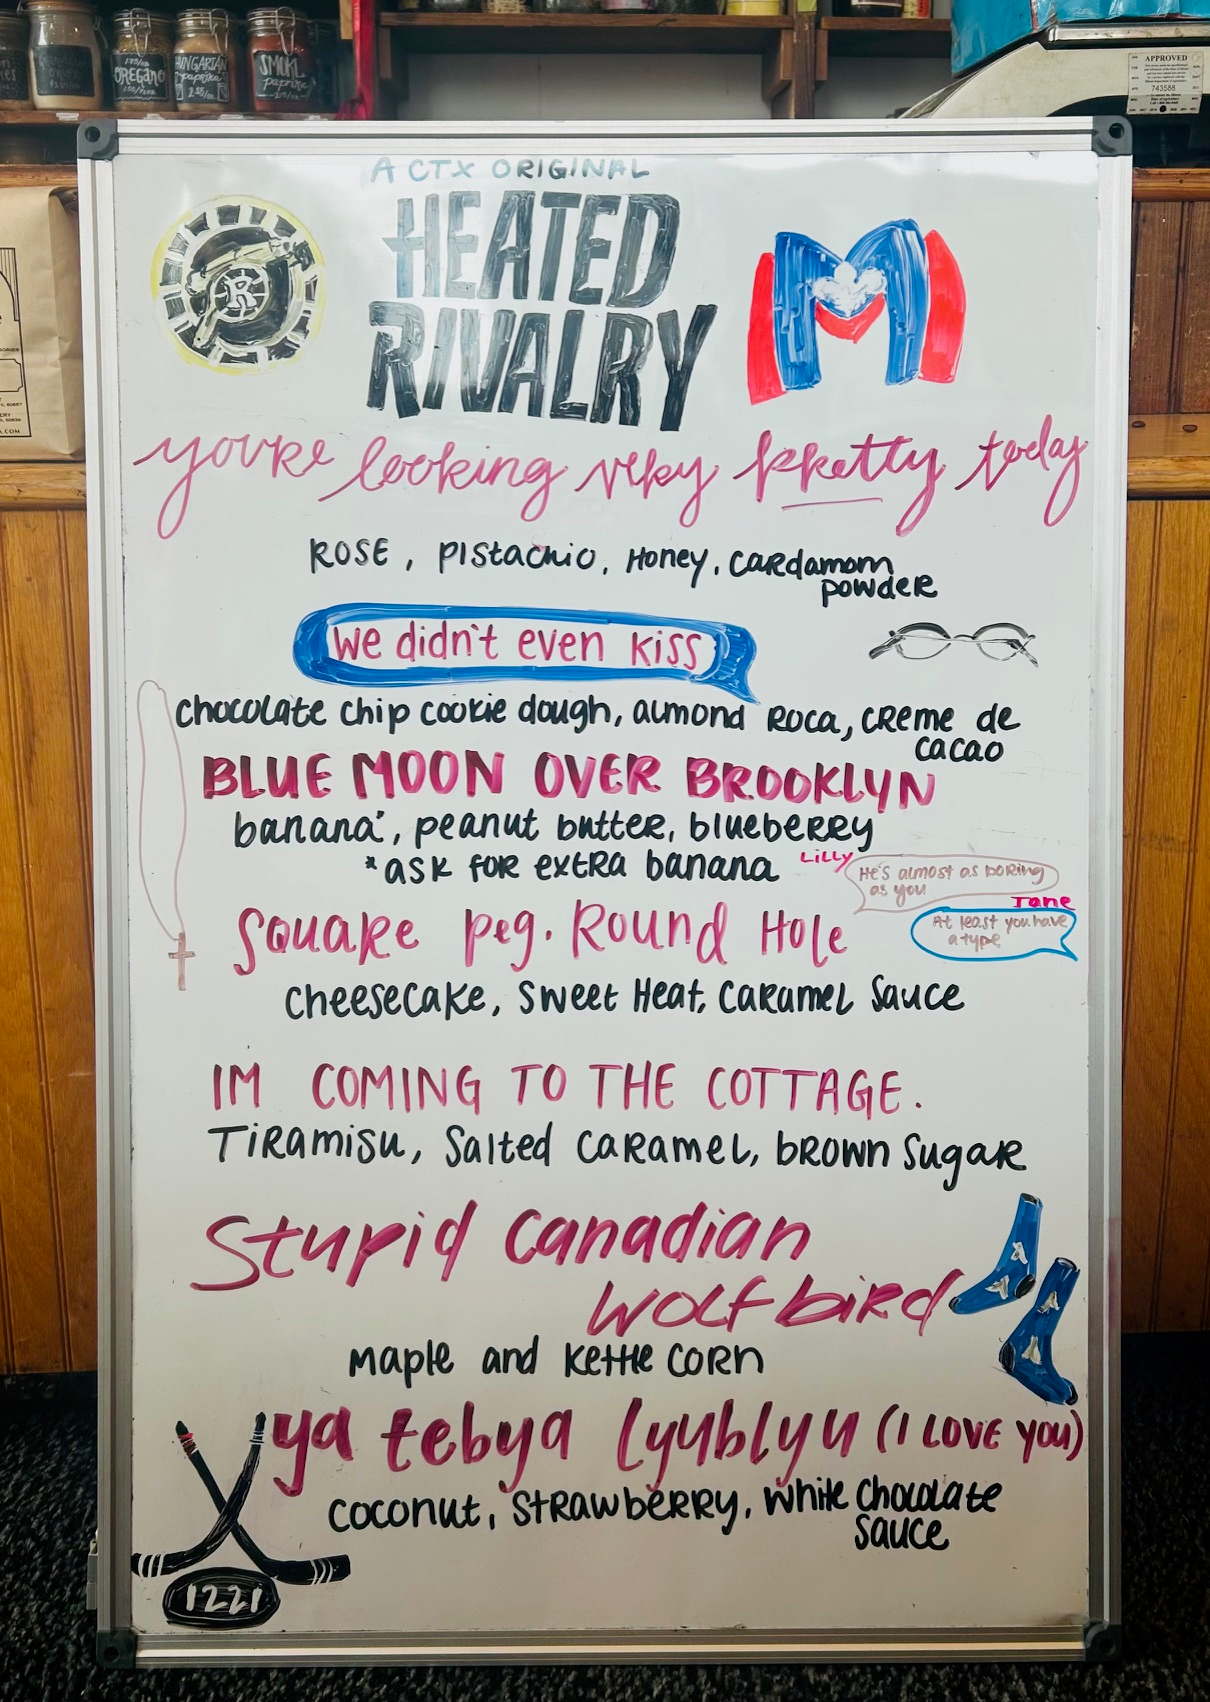 OREGANO
HUNGARIAN
paprika
SMOKE
paprika
APPROVED
743588
A CTX ORIGINAL
HEATED
RIVALRY
R
M
you're looking very pretty today
ROSE, PISTACHIO, HONEY, CARDAMOM
POWDER
We didn't even kiss
chocolate chip cookie dough, almond Roca, creme de
cacao
BLUE MOON OVER BROOKLYN
banana*, peanut butter, blueberry
*ask for extra banana
LILLY
He's almost as boring
as you
Jane
At least you have
a type
Square Peg. Round Hole
Cheesecake, Sweet Heat, Caramel Sauce
IM COMING TO THE COTTAGE.
Tiramisu, Salted Caramel, brown Sugar
Stupid Canadian
Wolf bird
Maple and Kettle Corn
ya tebya lyublyu (I LOVE YOU)
Coconut, Strawberry, White Chocolate
Sauce
1221